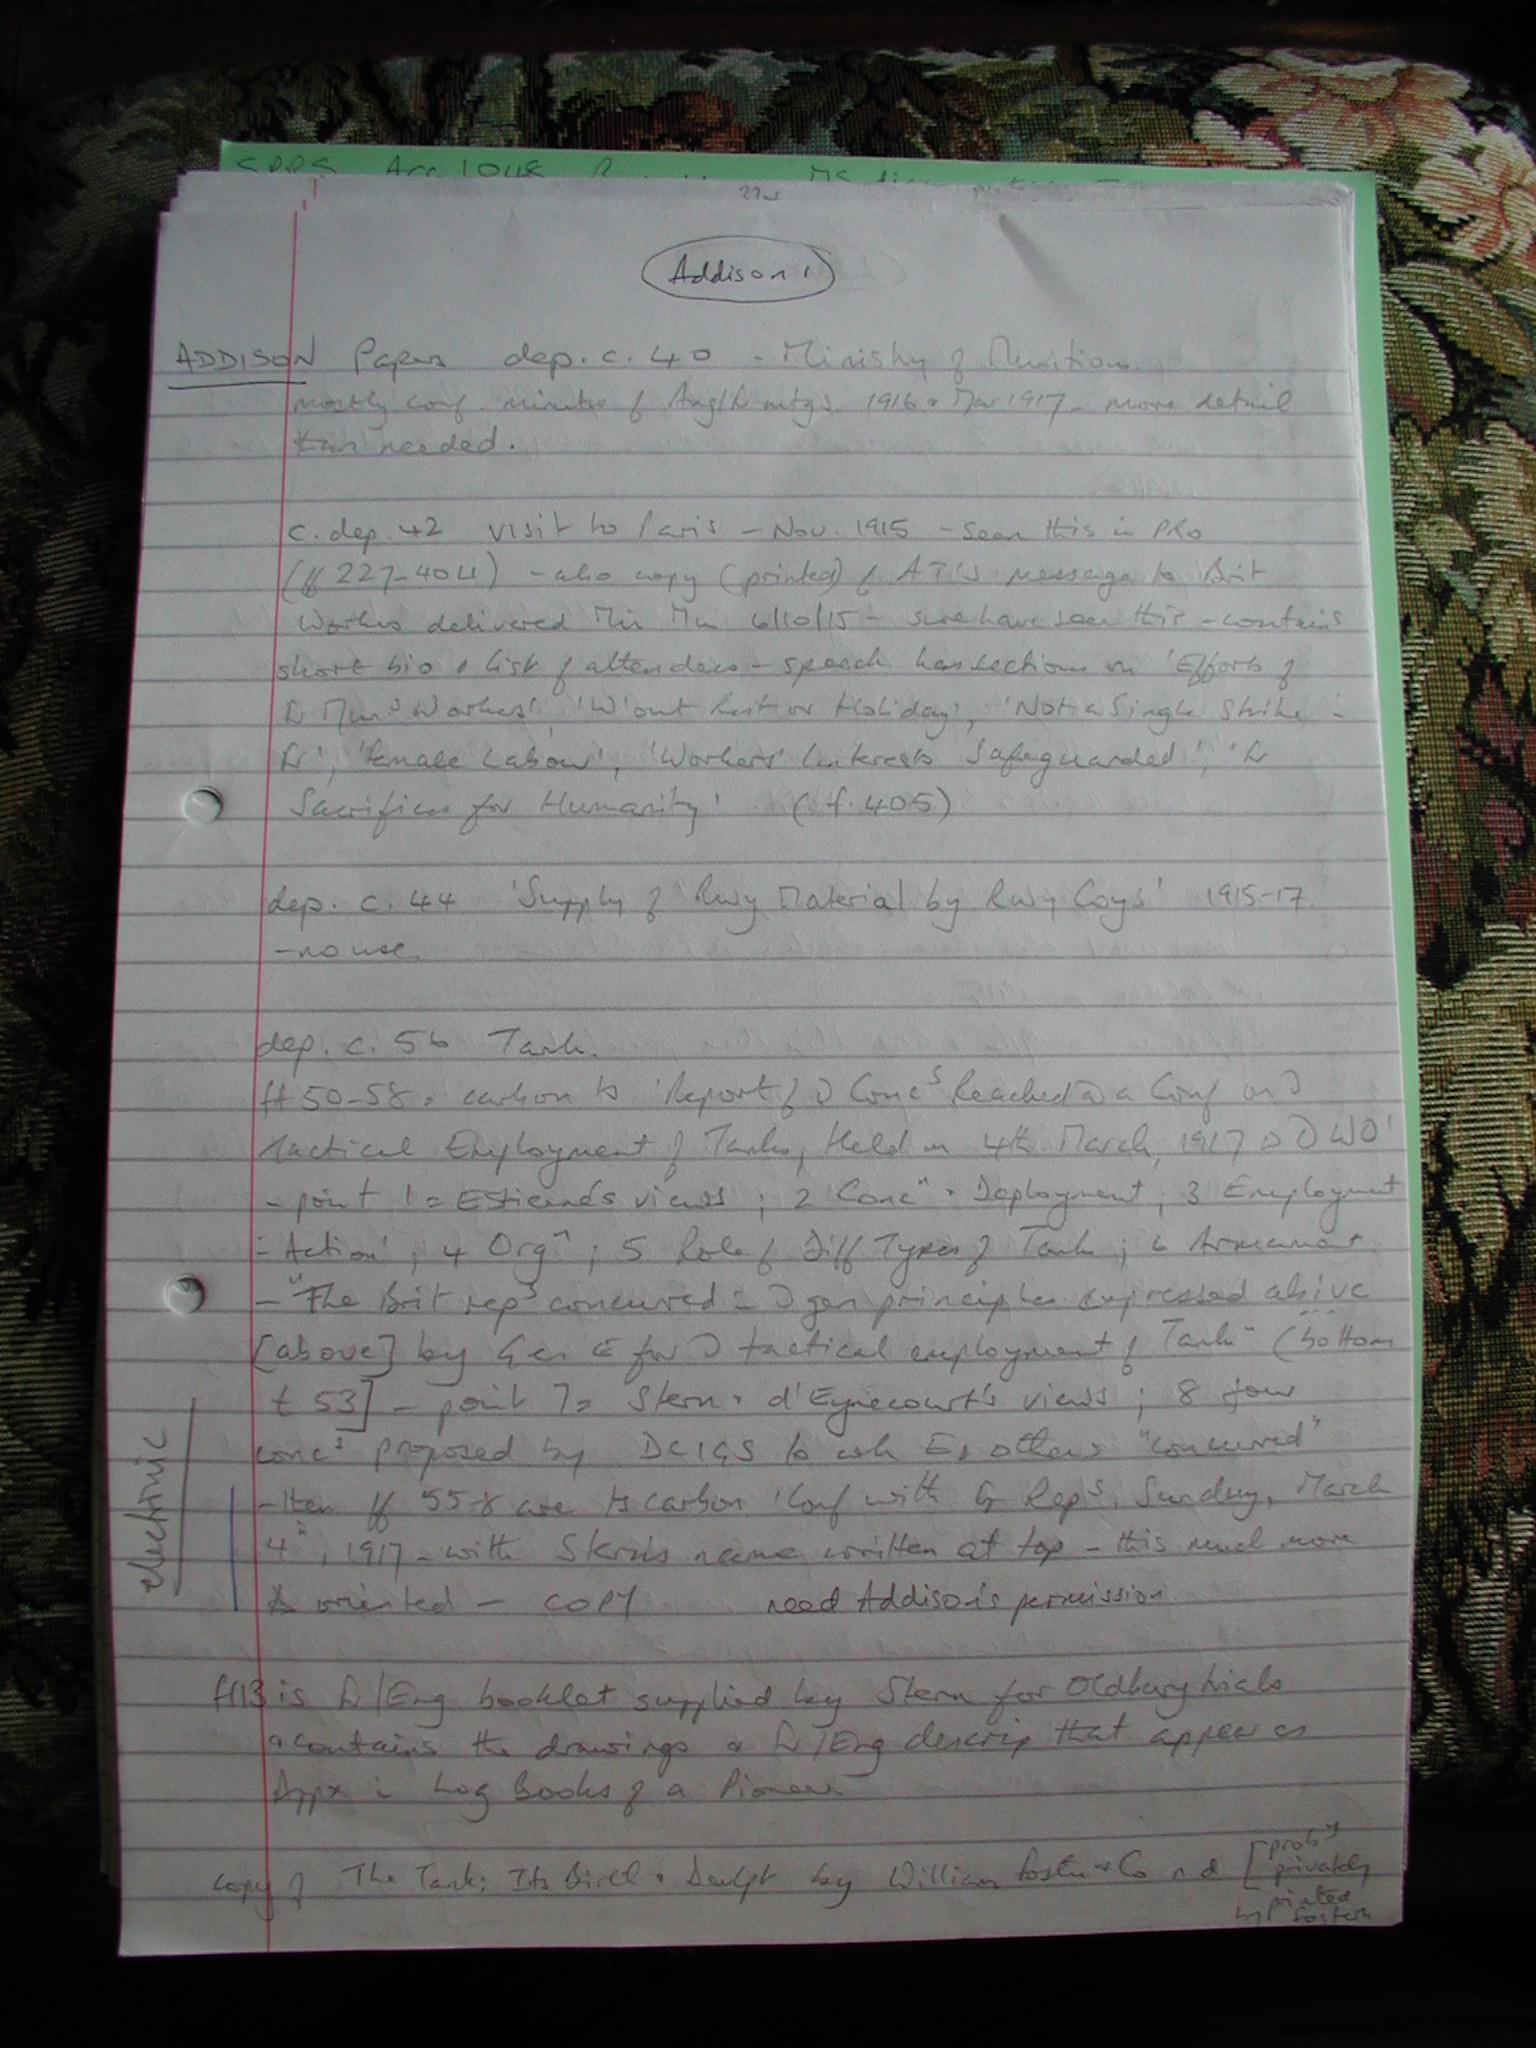 Addison 1
ADDISON Papers dep. c. 40 - Ministry of Munitions
mostly conf. minutes of Ang/Fr mtgs 1916 & Mar 1917 - more detail
than needed.
c. dep. 42 visit to Paris - Nov. 1915 - seen this in PRO
(ff 227-404) - also copy (printed) of AT's message to Brit
Workers delivered Min Mun 6/10/15 - sure have seen this - contains
short bio & list of attendees - speech has sections on 'Efforts of
Fr Muns Workers', 'W'out Rest or Holiday', 'Not a Single Strike -
Fr', 'Female Labour', 'Workers' Interests Safeguarded', 'Fr
Sacrifices for Humanity' (f. 405)
dep. c. 44 'Supply of Rwy Material by Rwy Coys' 1915-17.
- no use
dep. c. 56 Tank.
ff 50-58 = carbon ts 'Report of Concs Reached a Conf on
Tactical Employment of Tanks, Held on 4th March, 1917 WO'
- point 1 = Estienne's views; 2 Concn & Deployment; 3 Employment
Action'; 4 Orgn; 5 Role of Diff Types of Tank; 6 Armament
- "The Brit reps concurred gen principles expressed abive
[above] by Gen E for tactical employment of Tank" (bottom
f 53] - point 7 = Stern & d'Eyncourt's views; 8 four
concs proposed by DCIGS to wh E & others "concurred"
- then ff 55-8 are ts carbon 'Conf with Fr Reps, Sunday, March
4th, 1917 - with Stern's name written at top - this much more
oriented - COPY need Addison's permission
electronic
f113 is Fr/Eng booklet supplied by Stern for Oldbury trials
& contains the drawings & Fr/Eng descrip that appear as
Appx in Log Books of a Pioneer
copy of The Tank: Its Birth & Devlpt by William Foster & Co n d [proby
privately
printed
by Fosters